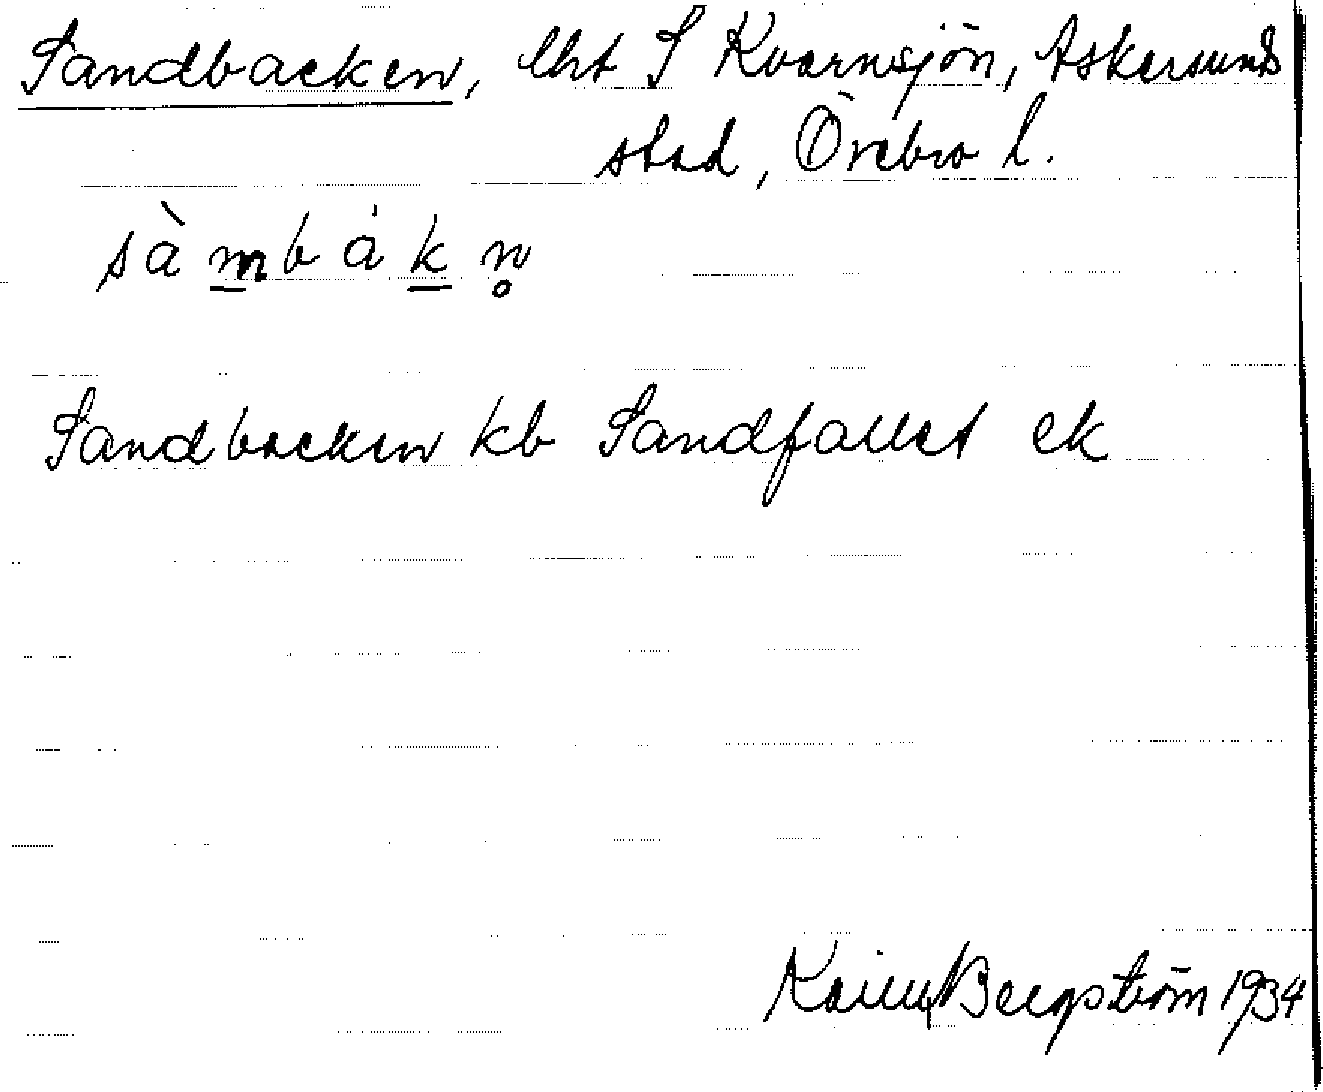 Sandbacken, lht S Kvarnsjön, Askersunds
stad, Örebro l.
sàmbákn̥
Sandbacken kb Sandfallet ek
Bergström 1934